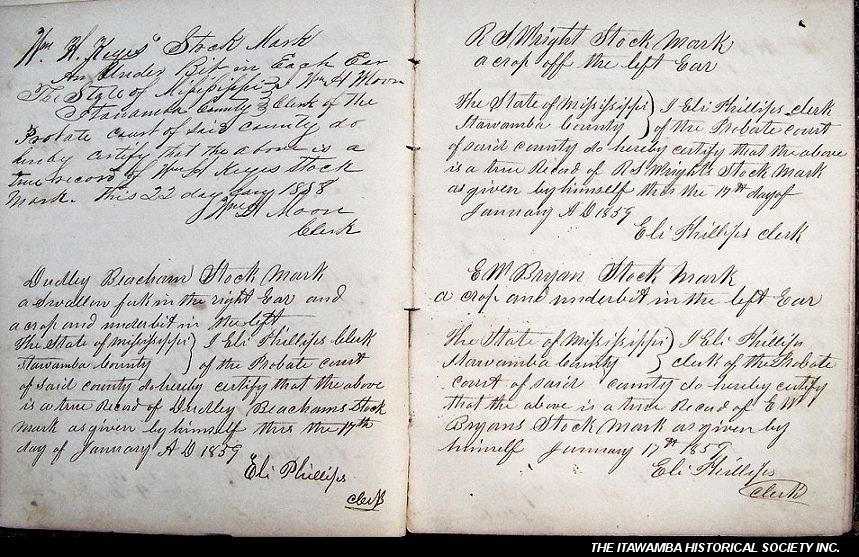 Wm H. Keyes' Stock Mark
An Under Bit in Each Ear
The State of Mississippi } I Wm H Moon
Itawamba County } Clerk of the
Probate Court of said County do
hereby certify that the above is a
true record of Wm H Keyes stock
Mark. This 22 day Jany 1858
Wm H Moon
Clerk
Dudley Beacham Stock Mark
a Swallow fork in the right Ear and
a crop and underbit in the left
The State of Mississippi } I Eli Phillips Clerk
Itawamba County } of the Probate court
of said county do hereby certify that the above
is a true Record of Dudley Beachams Stock
mark as given by himself this the 17th
day of January A D 1859
Eli Phillips
clerk
R S Wright Stock Mark
a crop off the left Ear
The State of Mississippi } I Eli Phillips clerk
Itawamba County } of the Probate court
of said county do hereby certify that the above
is a true Record of R S Wrights Stock Mark
as given by himself this the 17th day of
January A D 1859
Eli Phillips clerk
E W Bryan Stock Mark
a crop and underbit in the left Ear
The State of Mississippi } I Eli Phillips
Itawamba County } clerk of the Probate
court of said county do hereby certify
that the above is a true Record of E W
Bryans Stock Mark as given by
himself January 17th 1859
Eli Phillips
clerk
THE ITAWAMBA HISTORICAL SOCIETY INC.